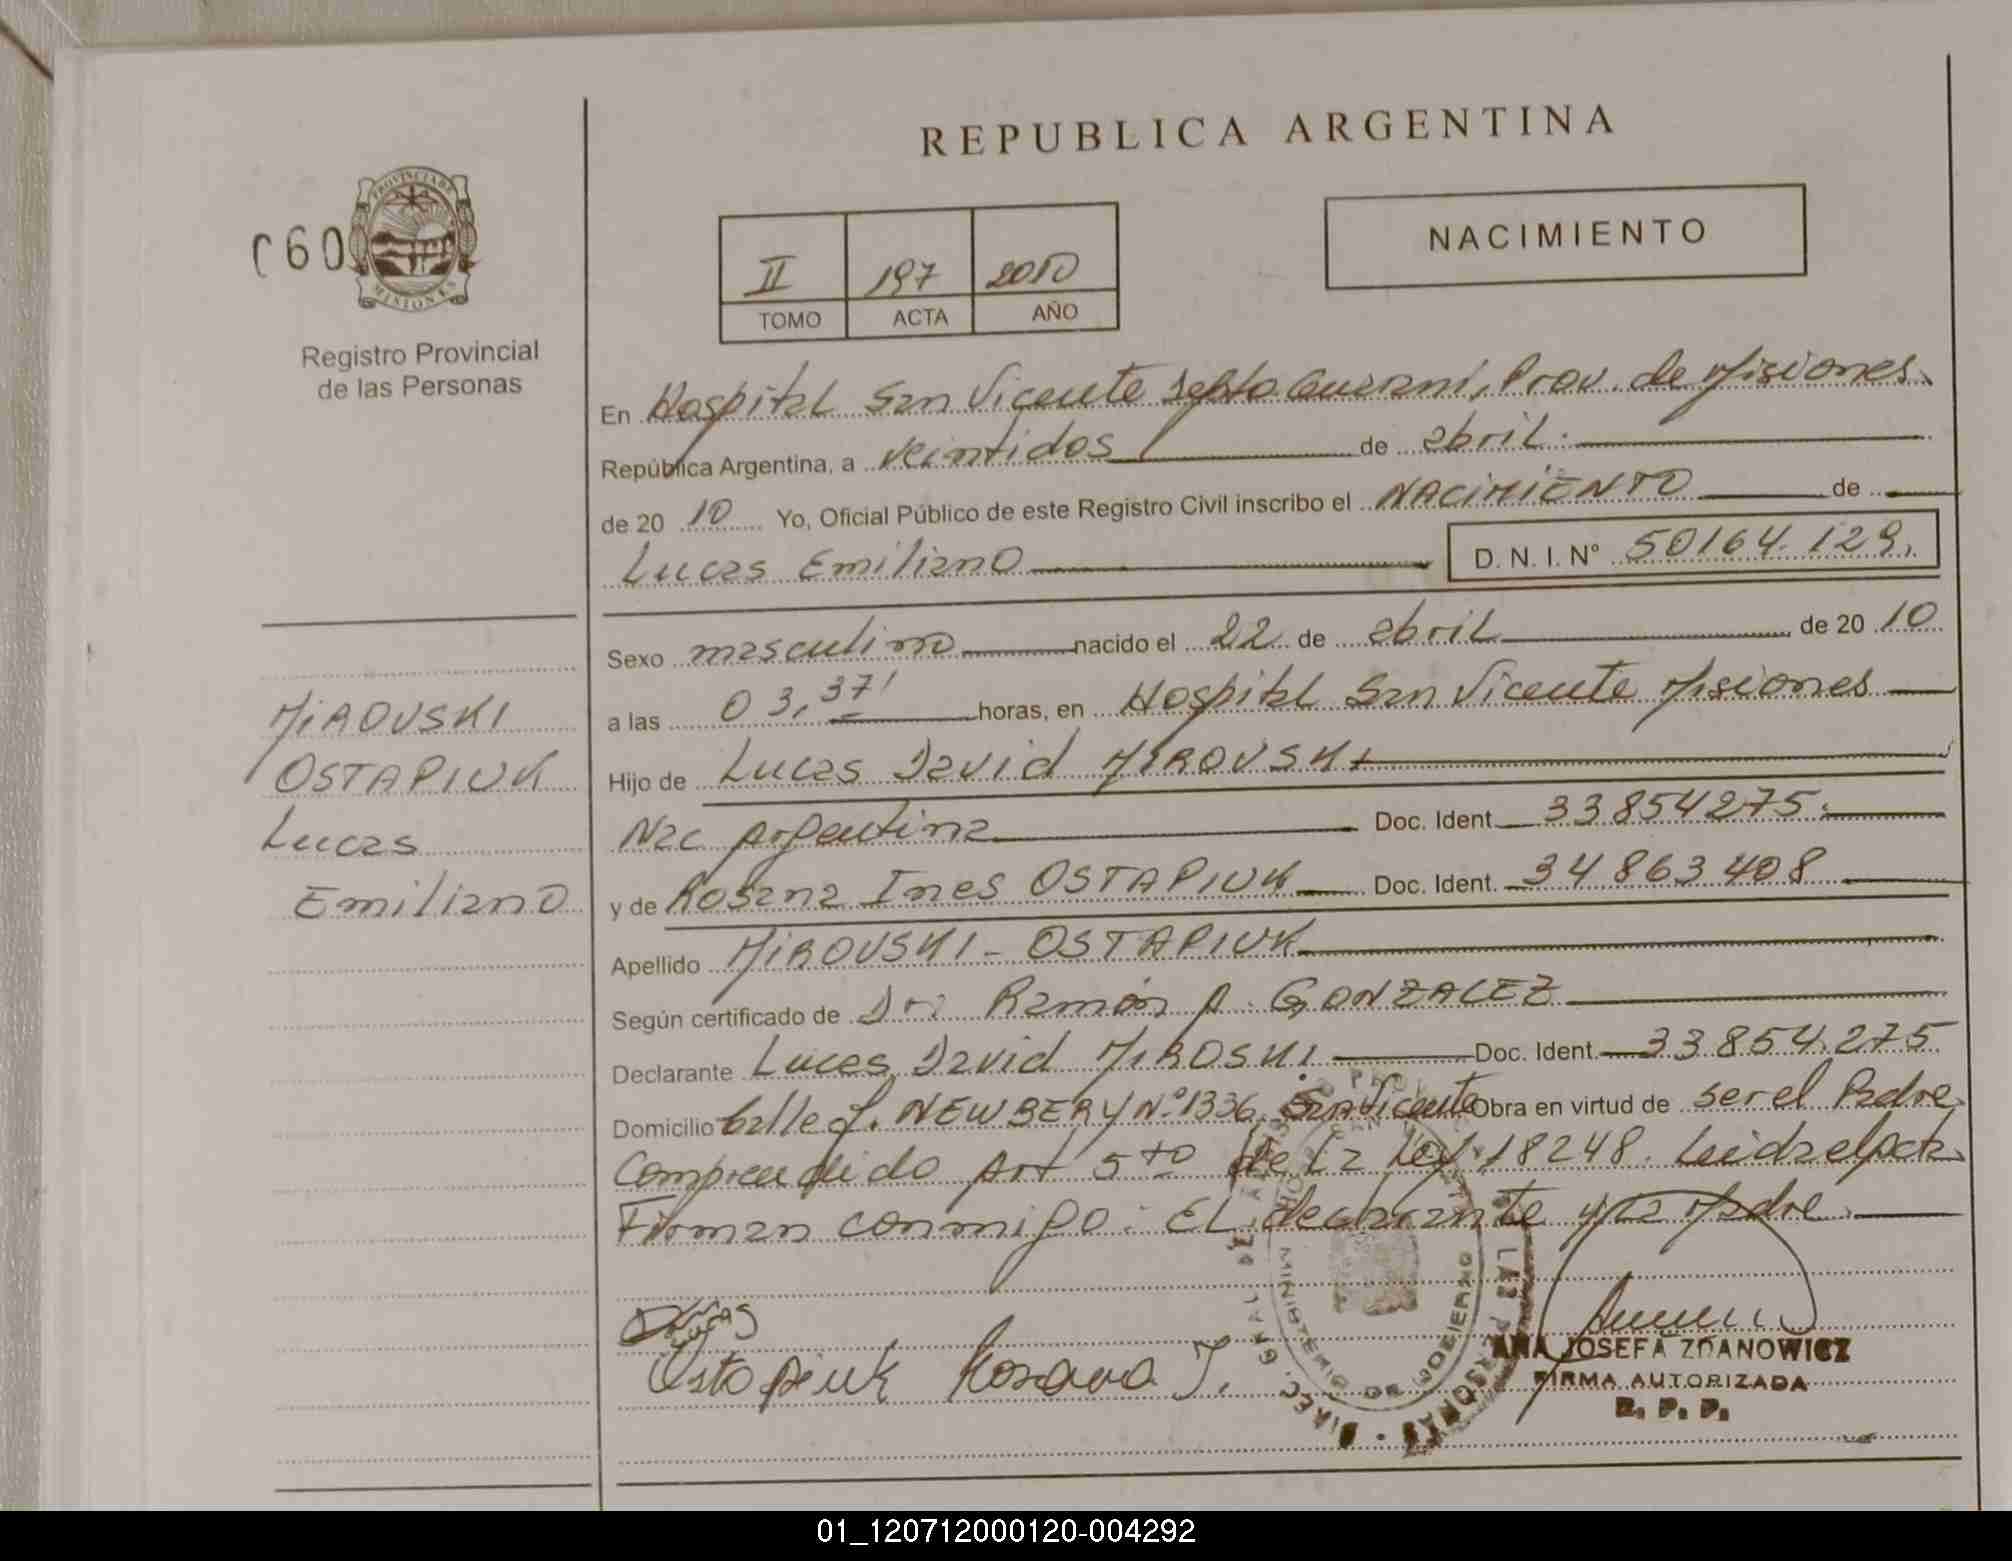 REPUBLICA ARGENTINA
C60
PROVINCIA DE
MISIONES
Registro Provincial
de las Personas
II 197 2010
TOMO ACTA AÑO
NACIMIENTO
En Hospital San Vicente Depto Guarani, Prov. de Misiones
República Argentina, a veintidos de abril.
de 20 10 Yo, Oficial Público de este Registro Civil inscribo el NACIMIENTO de
Lucas Emiliano D. N. I. N° 50164.129.
Sexo masculino nacido el 22 de abril de 20 10
a las 03,37' horas, en Hospital San Vicente Misiones
Hijo de Lucas David MIROVSKI
Nac argentina Doc. Ident. 33854275.
y de Rosana Ines OSTAPIUK Doc. Ident. 34863408
Apellido MIROVSKI - OSTAPIUK
Según certificado de Dr. Ramón A. GONZALEZ
Declarante Lucas David MIROSKI. Doc. Ident. 33.854.275
Domicilio Calle J. NEWBERY N° 1336, San Vicente Obra en virtud de ser el Padre
Comprendido Art 5to de la Ley 18248. Leida el acta
Firman conmigo: EL declarante y la Madre.
MIROVSKI
OSTAPIUK
Lucas
Emiliano
Lucas
Ostapiuk Rosana I.
MINISTERIO DE GOBIERNO
ANA JOSEFA ZDANOWICZ
FIRMA AUTORIZADA
R. P. P.
01_120712000120-004292